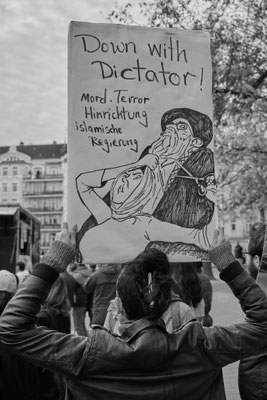 Down with
Dictator!
Mord. Terror
Hinrichtung
islamische
Regierung